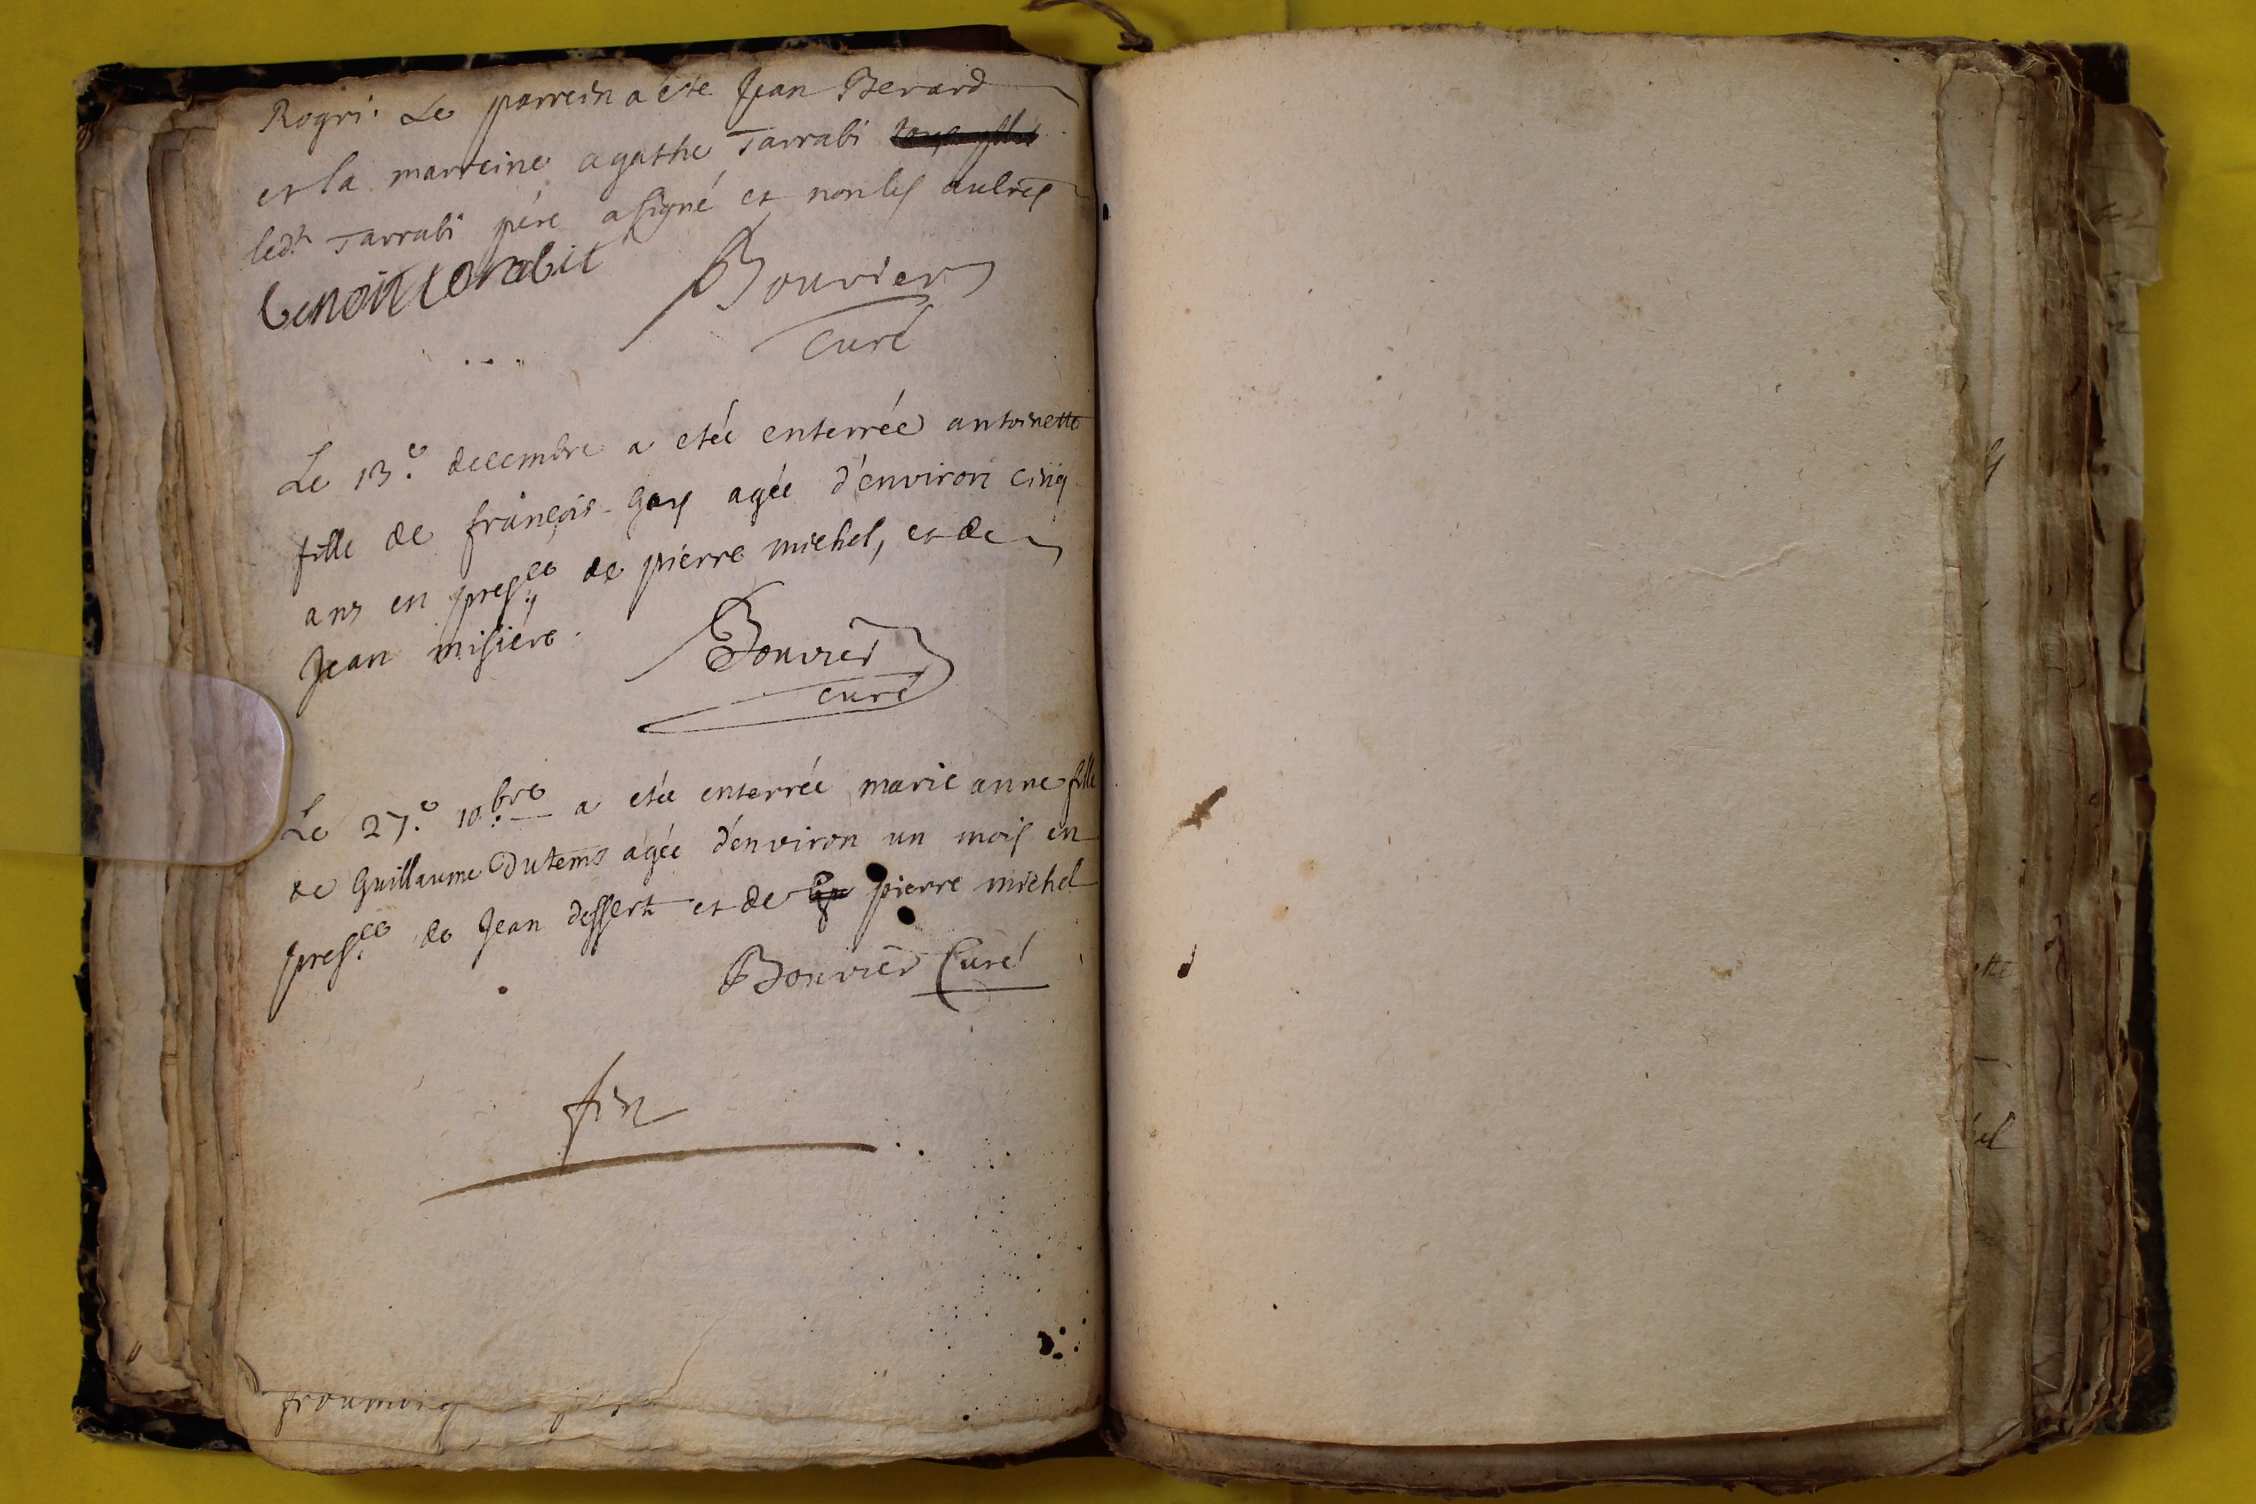 Rogri. Le parrein a été Jean Berard
et la marreine agathe Tarrabi
led.t Tarrabi pére a signé et non les autres
benoit torabit Bouvier
curé
Le 13.e decembre a etée enterrée antoinette
fille de françois Gay agée d'environ cinq
ans en pres.ce de pierre michel, et de
Jean misiére.
Bouvier
curé
Le 27.e 10.bre a etée enterrée marie anne fille
de Guillaume Dutems agée d'environ un mois en
pres.ce de Jean dessert et de pierre michel
Bouvier Curé
fin